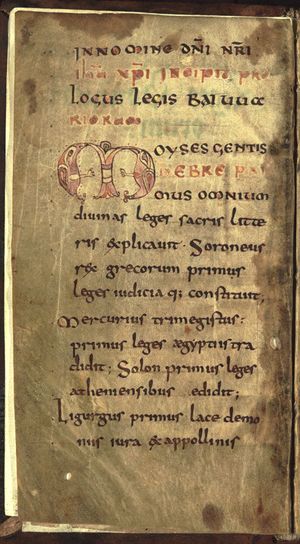 INNOMINE DNI NRI
IHU XPI INCIPIT PRO
LOGUS LEGIS BAIUUA
RIORUM
MOYSES GENTIS
hEBREBAI
CAE PRIMUS OMNIUM
diuinas leges sacris litte
ris explicauit. foroneus
rex grecorum primus
leges iudicia q; constituit;
Mercurius trimegistus:
primus leges ægyptiis tra
didit; Solon primus leges
atheniensibus edidit;
Ligurgus primus lacedemo
niis iura ex appollinis